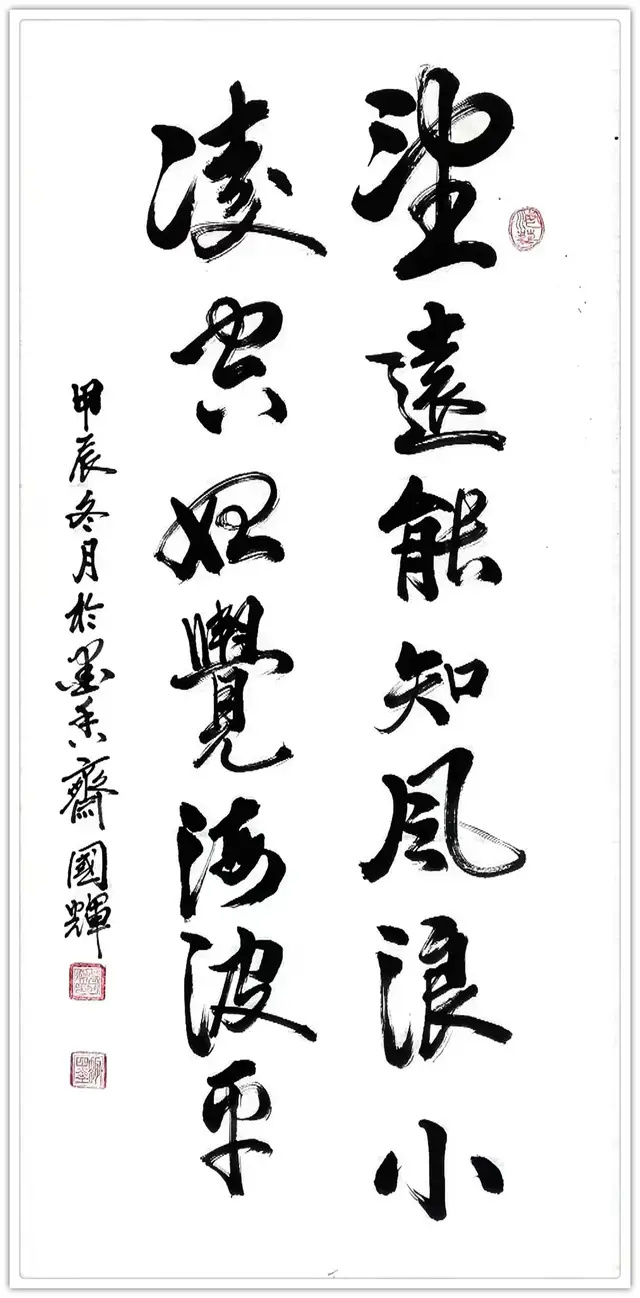 望遠能知風浪小
凌空始覺海波平
甲辰冬月於墨香齋國輝